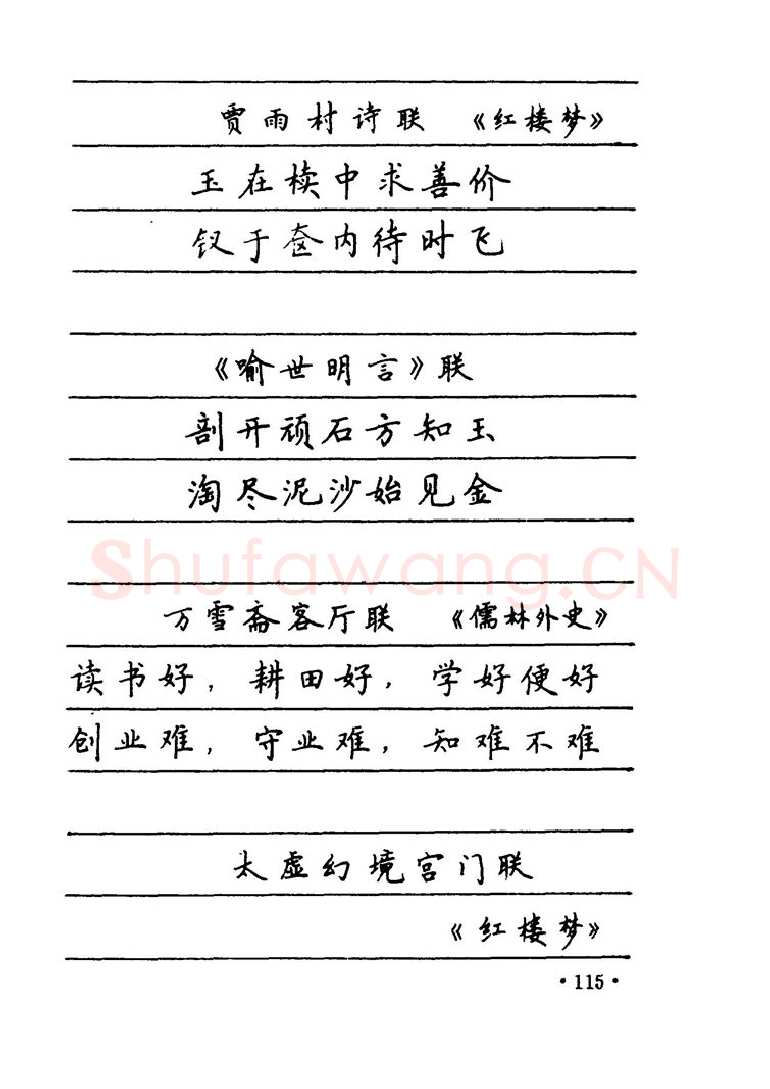 贾雨村诗联 《红楼梦》
玉在椟中求善价
钗于奁内待时飞
《喻世明言》联
剖开顽石方知玉
淘尽泥沙始见金
Shufawang.CN
万雪斋客厅联 《儒林外史》
读书好，耕田好，学好便好
创业难，守业难，知难不难
太虚幻境宫门联
《红楼梦》
·115·